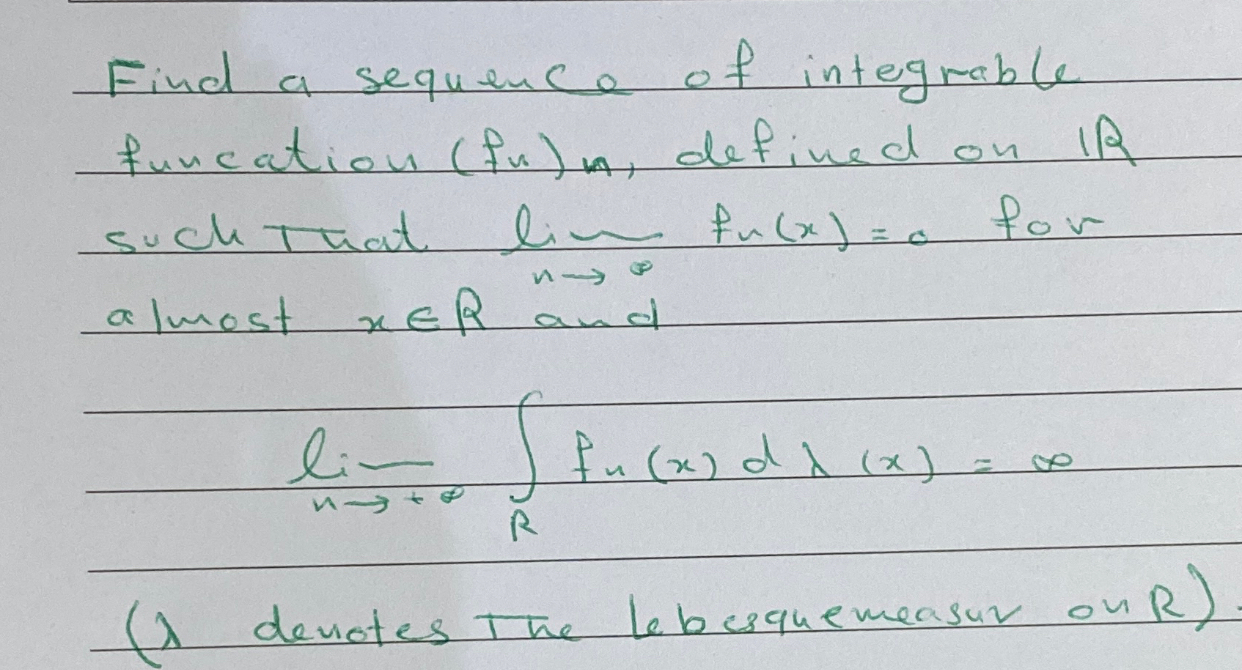 Find a sequence of integrable
funcation (fn)n, defined on ℝ
such That lim fn(x) = 0 for
n→∞
almost x∈R and
lim ∫ fn(x) dλ(x) = ∞
n→+∞ R
(λ denotes The lebesquemeasur on R).